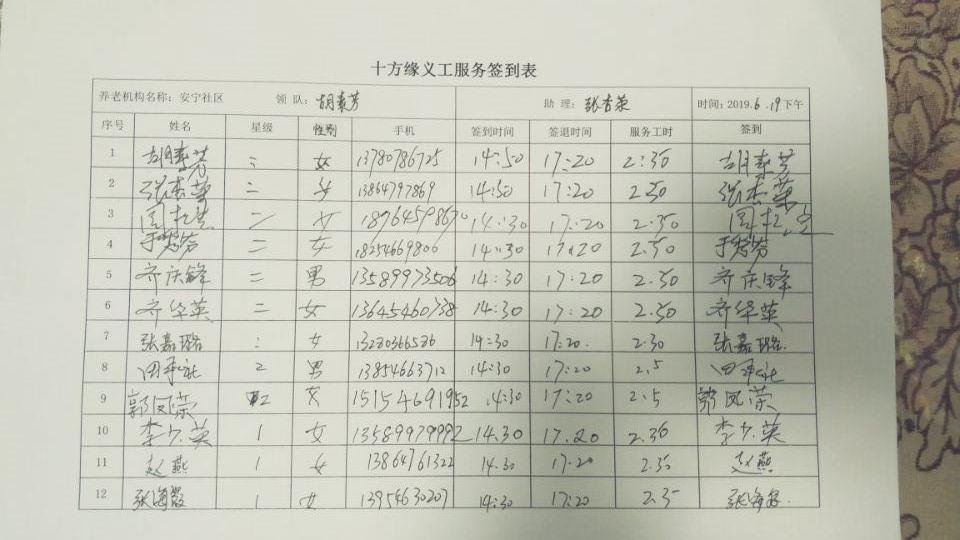 十方缘义工服务签到表
养老机构名称：安宁社区 领 队：胡素芳 助 理：张杏荣 时间：2019.6.19下午
序号 姓名 星级 性别 手机 签到时间 签退时间 服务工时 签到
1 胡素芳 二 女 13780786725 14:50 17:20 2:30 胡素芳
2 二 女 13864797869 14:50 17:20 2.50
3 二 女 14:30 17:20 2.30
4 二 女 18254669806 14:30 17:20 2.50
5 齐庆锋 二 男 13589973506 14:30 17:20 2.50 齐庆锋
6 齐华英 二 女 13645460738 14:30 17:20 2.50 齐华英
7 张嘉璐 女 14:30 17:20. 2:30 张嘉璐.
8 田承礼 2 男 13854663712 14:30 17:20 2.5 田承礼
9 郭凤荣 2 女 15154691952 14:30 17:20 2.5 郭凤荣
10 李少英 1 女 14.30 17.20 2.30 李少英
11 赵燕 1 女 13864761322 14.30 17.20 2.30 赵燕
12 1 女 13954630207 14:30 17:20